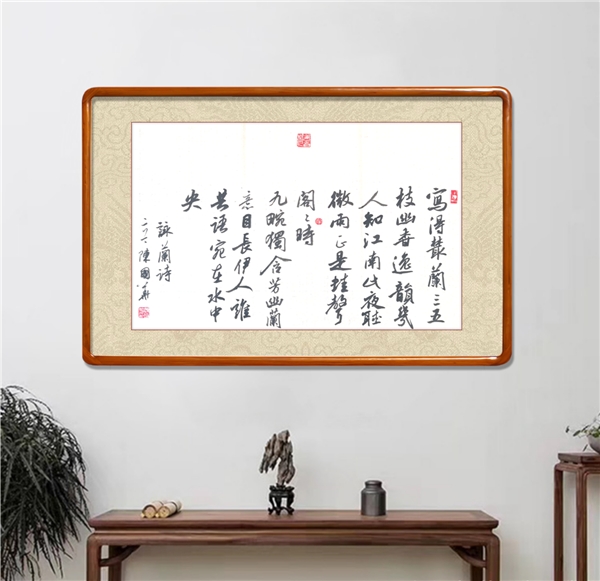 寫得叢蘭三五
枝幽香逸韻幾
人知江南此夜聽
微雨正是蛙聲
閣〻時
九畹獨含芳幽蘭
意自長伊人誰
共語宛在水中
央
詠蘭詩
陳國華